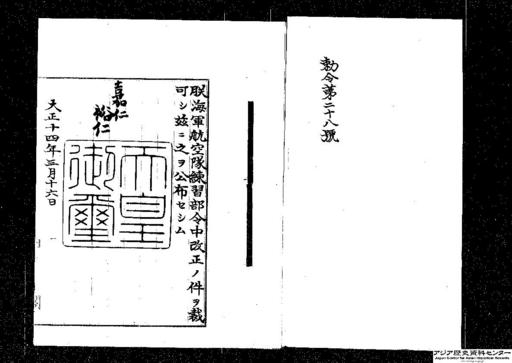 勅令第二十八號
朕海軍航空隊練習部令中改正ノ件ヲ裁
可シ玆ニ之ヲ公布セシム
嘉仁
裕仁
天皇
御璽
大正十四年三月十六日
アジア歴史資料センター
Japan Center for Asian Historical Records